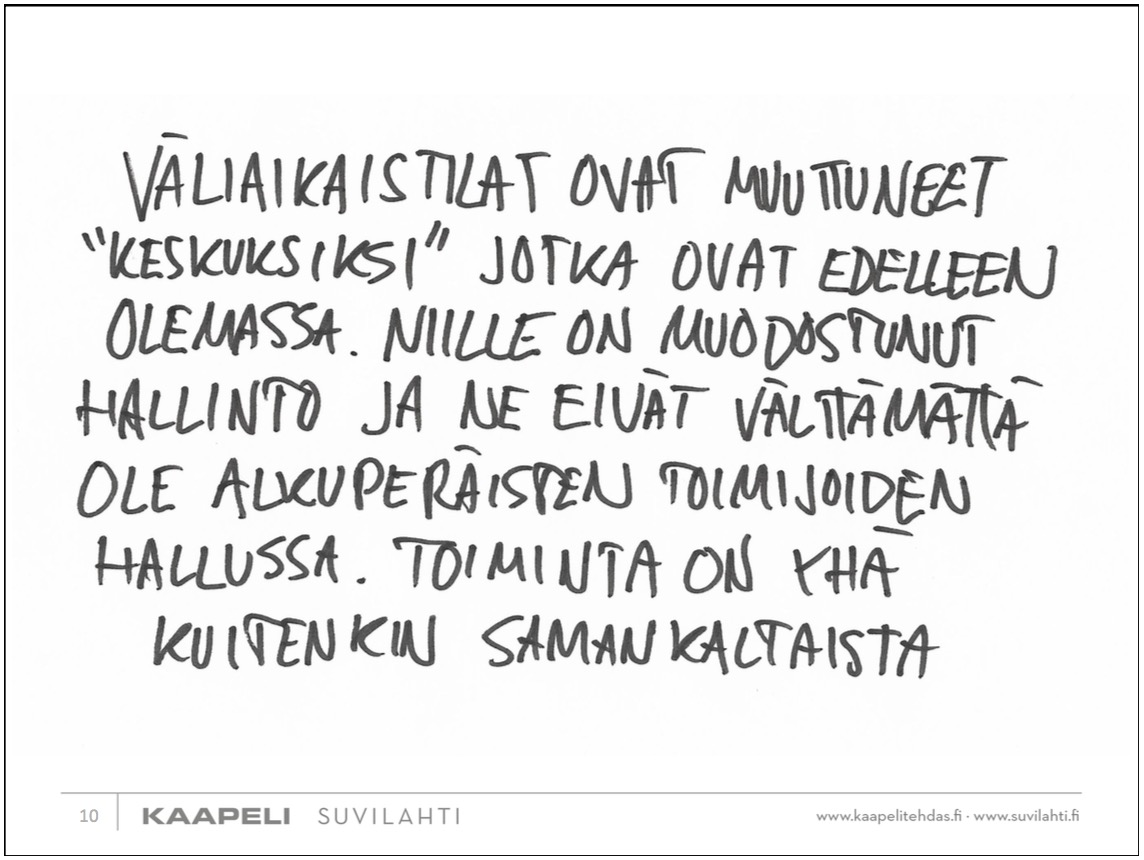 VÄLIAIKAISTILAT OVAT MUUTTUNEET
"KESKUKSIKSI" JOTKA OVAT EDELLEEN
OLEMASSA. NIILLE ON MUODOSTUNUT
HALLINTO JA NE EIVÄT VÄLTTÄMÄTTÄ
OLE ALKUPERÄISTEN TOIMIJOIDEN
HALLUSSA. TOIMINTA ON YHÄ
KUITENKIN SAMANKALTAISTA
10 KAAPELI SUVILAHTI www.kaapelitehdas.fi · www.suvilahti.fi